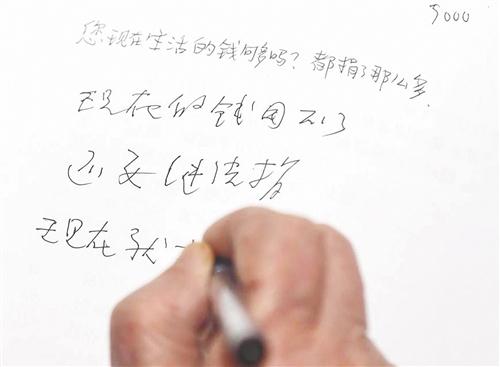 5000
您现在生活的钱够吗？都捐了那么多.
现在的钱用不了
还要继续捐
现在我一